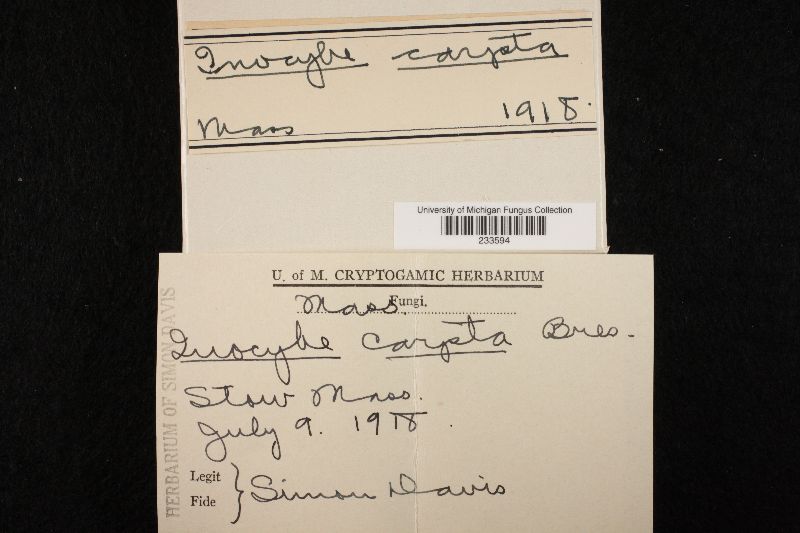 Inocybe carpta
Mass 1918.
University of Michigan Fungus Collection
233594
U. of M. CRYPTOGAMIC HERBARIUM
Mass. Fungi.
Inocybe carpta Bres.
Stow Mass.
July 9. 1918.
Legit
Fide
Simon Davis
HERBARIUM OF SIMON DAVIS